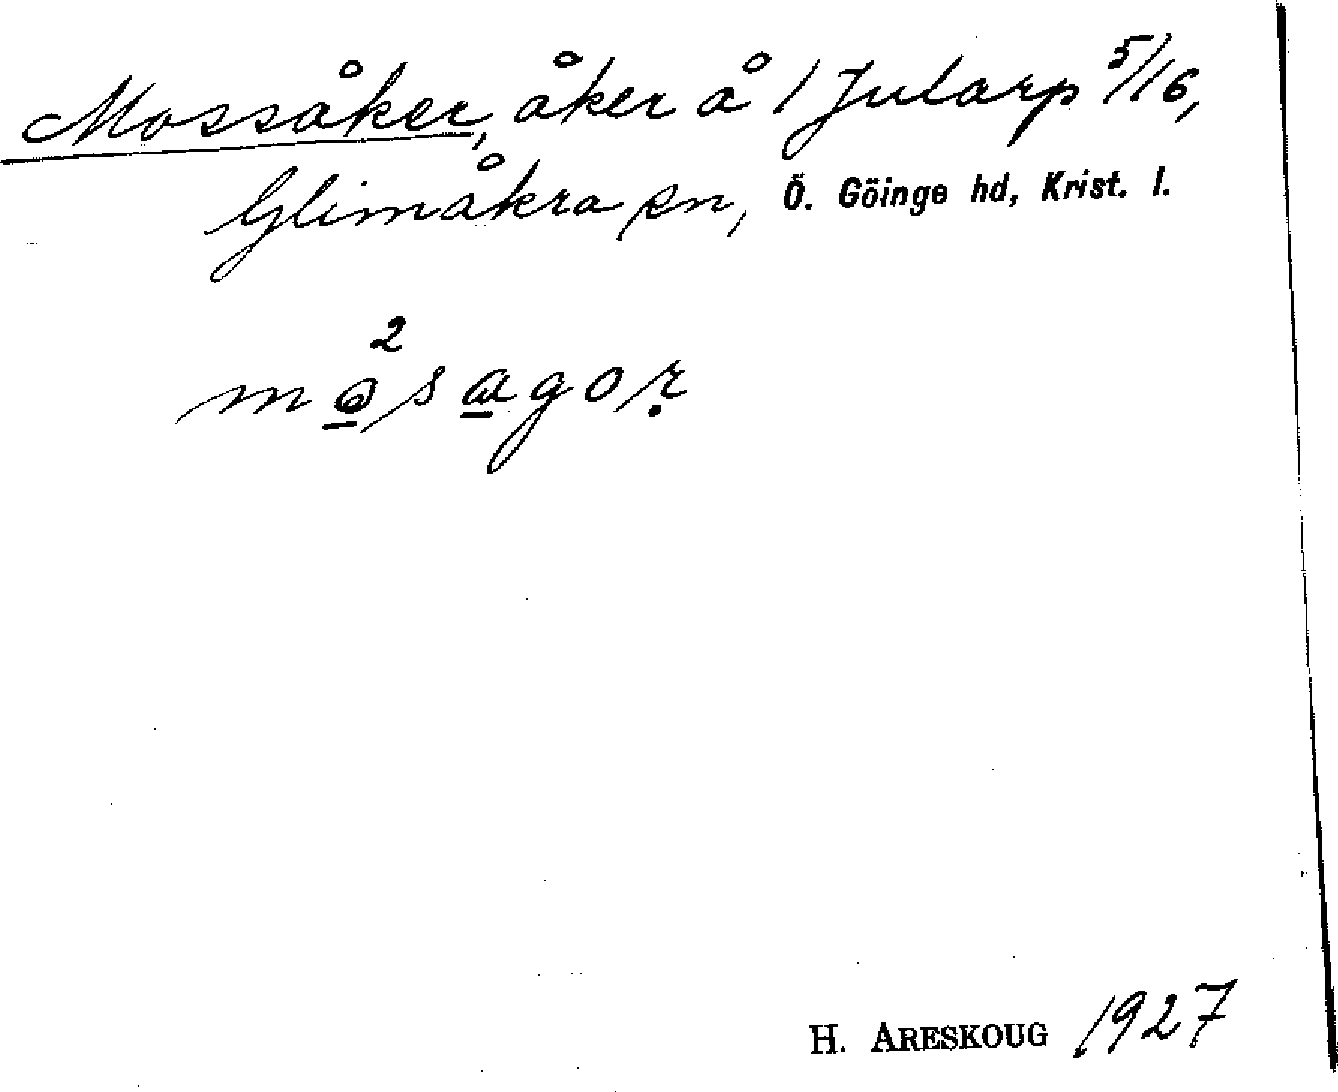 Mossåker, åker å 1 Jularp 5/16,
Glimåkra sn, Ö. Göinge hd, Krist. l.
2
mosagor
H. ARESKOUG 1927